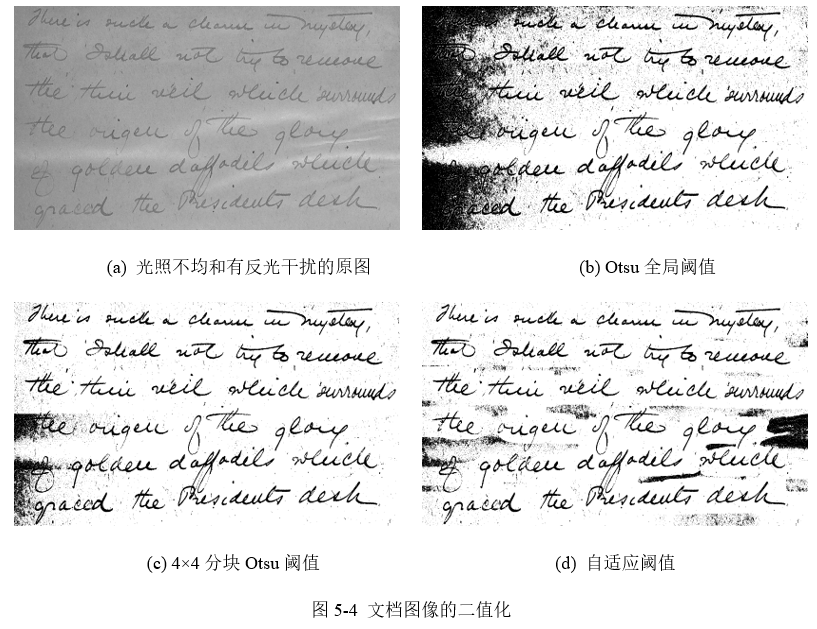 There is such a charm in mystery,
that I shall not try to remove
the thin veil which surrounds
the origen of the glory
of golden daffodils which
graced the Presidents desk
There is such a charm in mystery,
that I shall not try to remove
the thin veil which surrounds
the origen of the glory
of golden daffodils which
graced the Presidents desk
(a) 光照不均和有反光干扰的原图
(b) Otsu 全局阈值
There is such a charm in mystery,
that I shall not try to remove
the thin veil which surrounds
the origen of the glory
of golden daffodils which
graced the Presidents desk
There is such a charm in mystery,
that I shall not try to remove
the thin veil which surrounds
the origen of the glory
of golden daffodils which
graced the Presidents desk
(c) 4×4 分块 Otsu 阈值
(d) 自适应阈值
图 5-4 文档图像的二值化